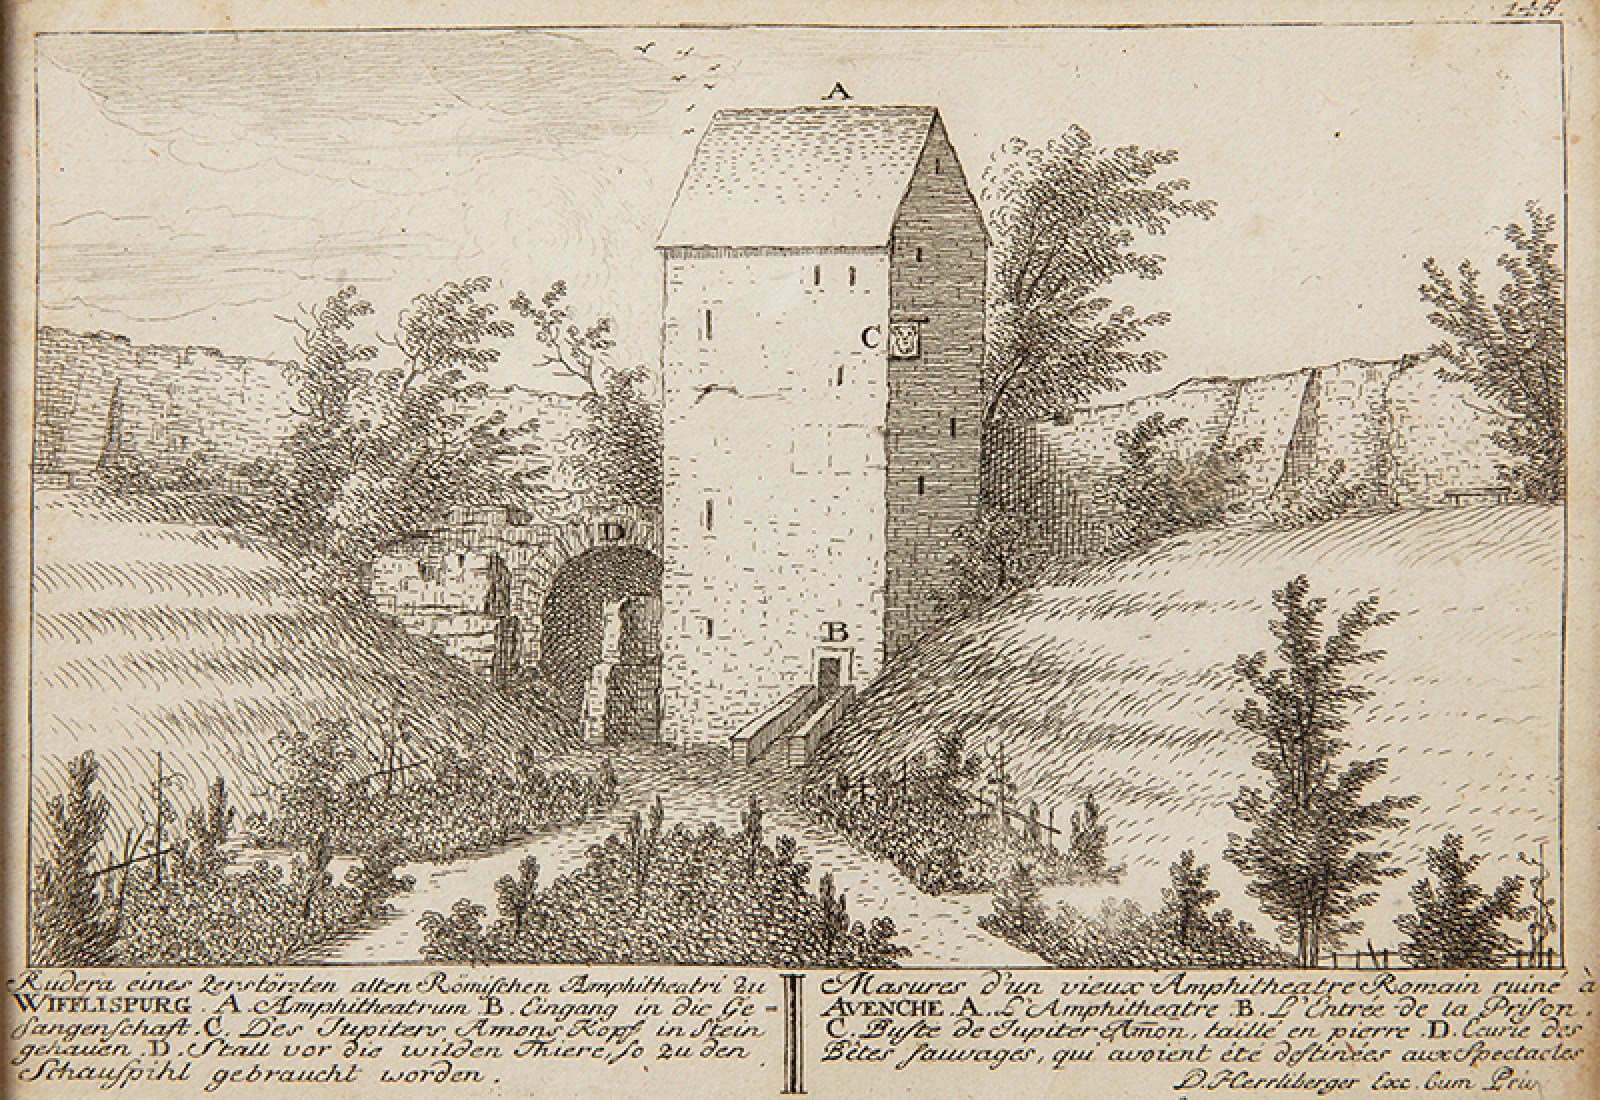 148.
A
C
D
B
Rudera eines zerstörzten alten Römischen Amphitheatri zu
WIFFLISPURG. A. Amphitheatrum B. Eingang in die Ge-
fangenschaft. C. Des Jupiters Amons Kopf, in Stein
gehauen. D. Stall vor die wilden Thiere, so zu den
Schauspihl gebraucht worden.
Masures d'un vieux Amphitheatre Romain ruiné à
AVENCHE. A. L'Amphitheatre. B. L'Entrée de la Prison.
C. Buste de Jupiter Amon, taillé en pierre. D. Ecurie des
Bêtes sauvages, qui avoient été destinées aux Spectacles
D. Herrliberger Exc. Cum Priv